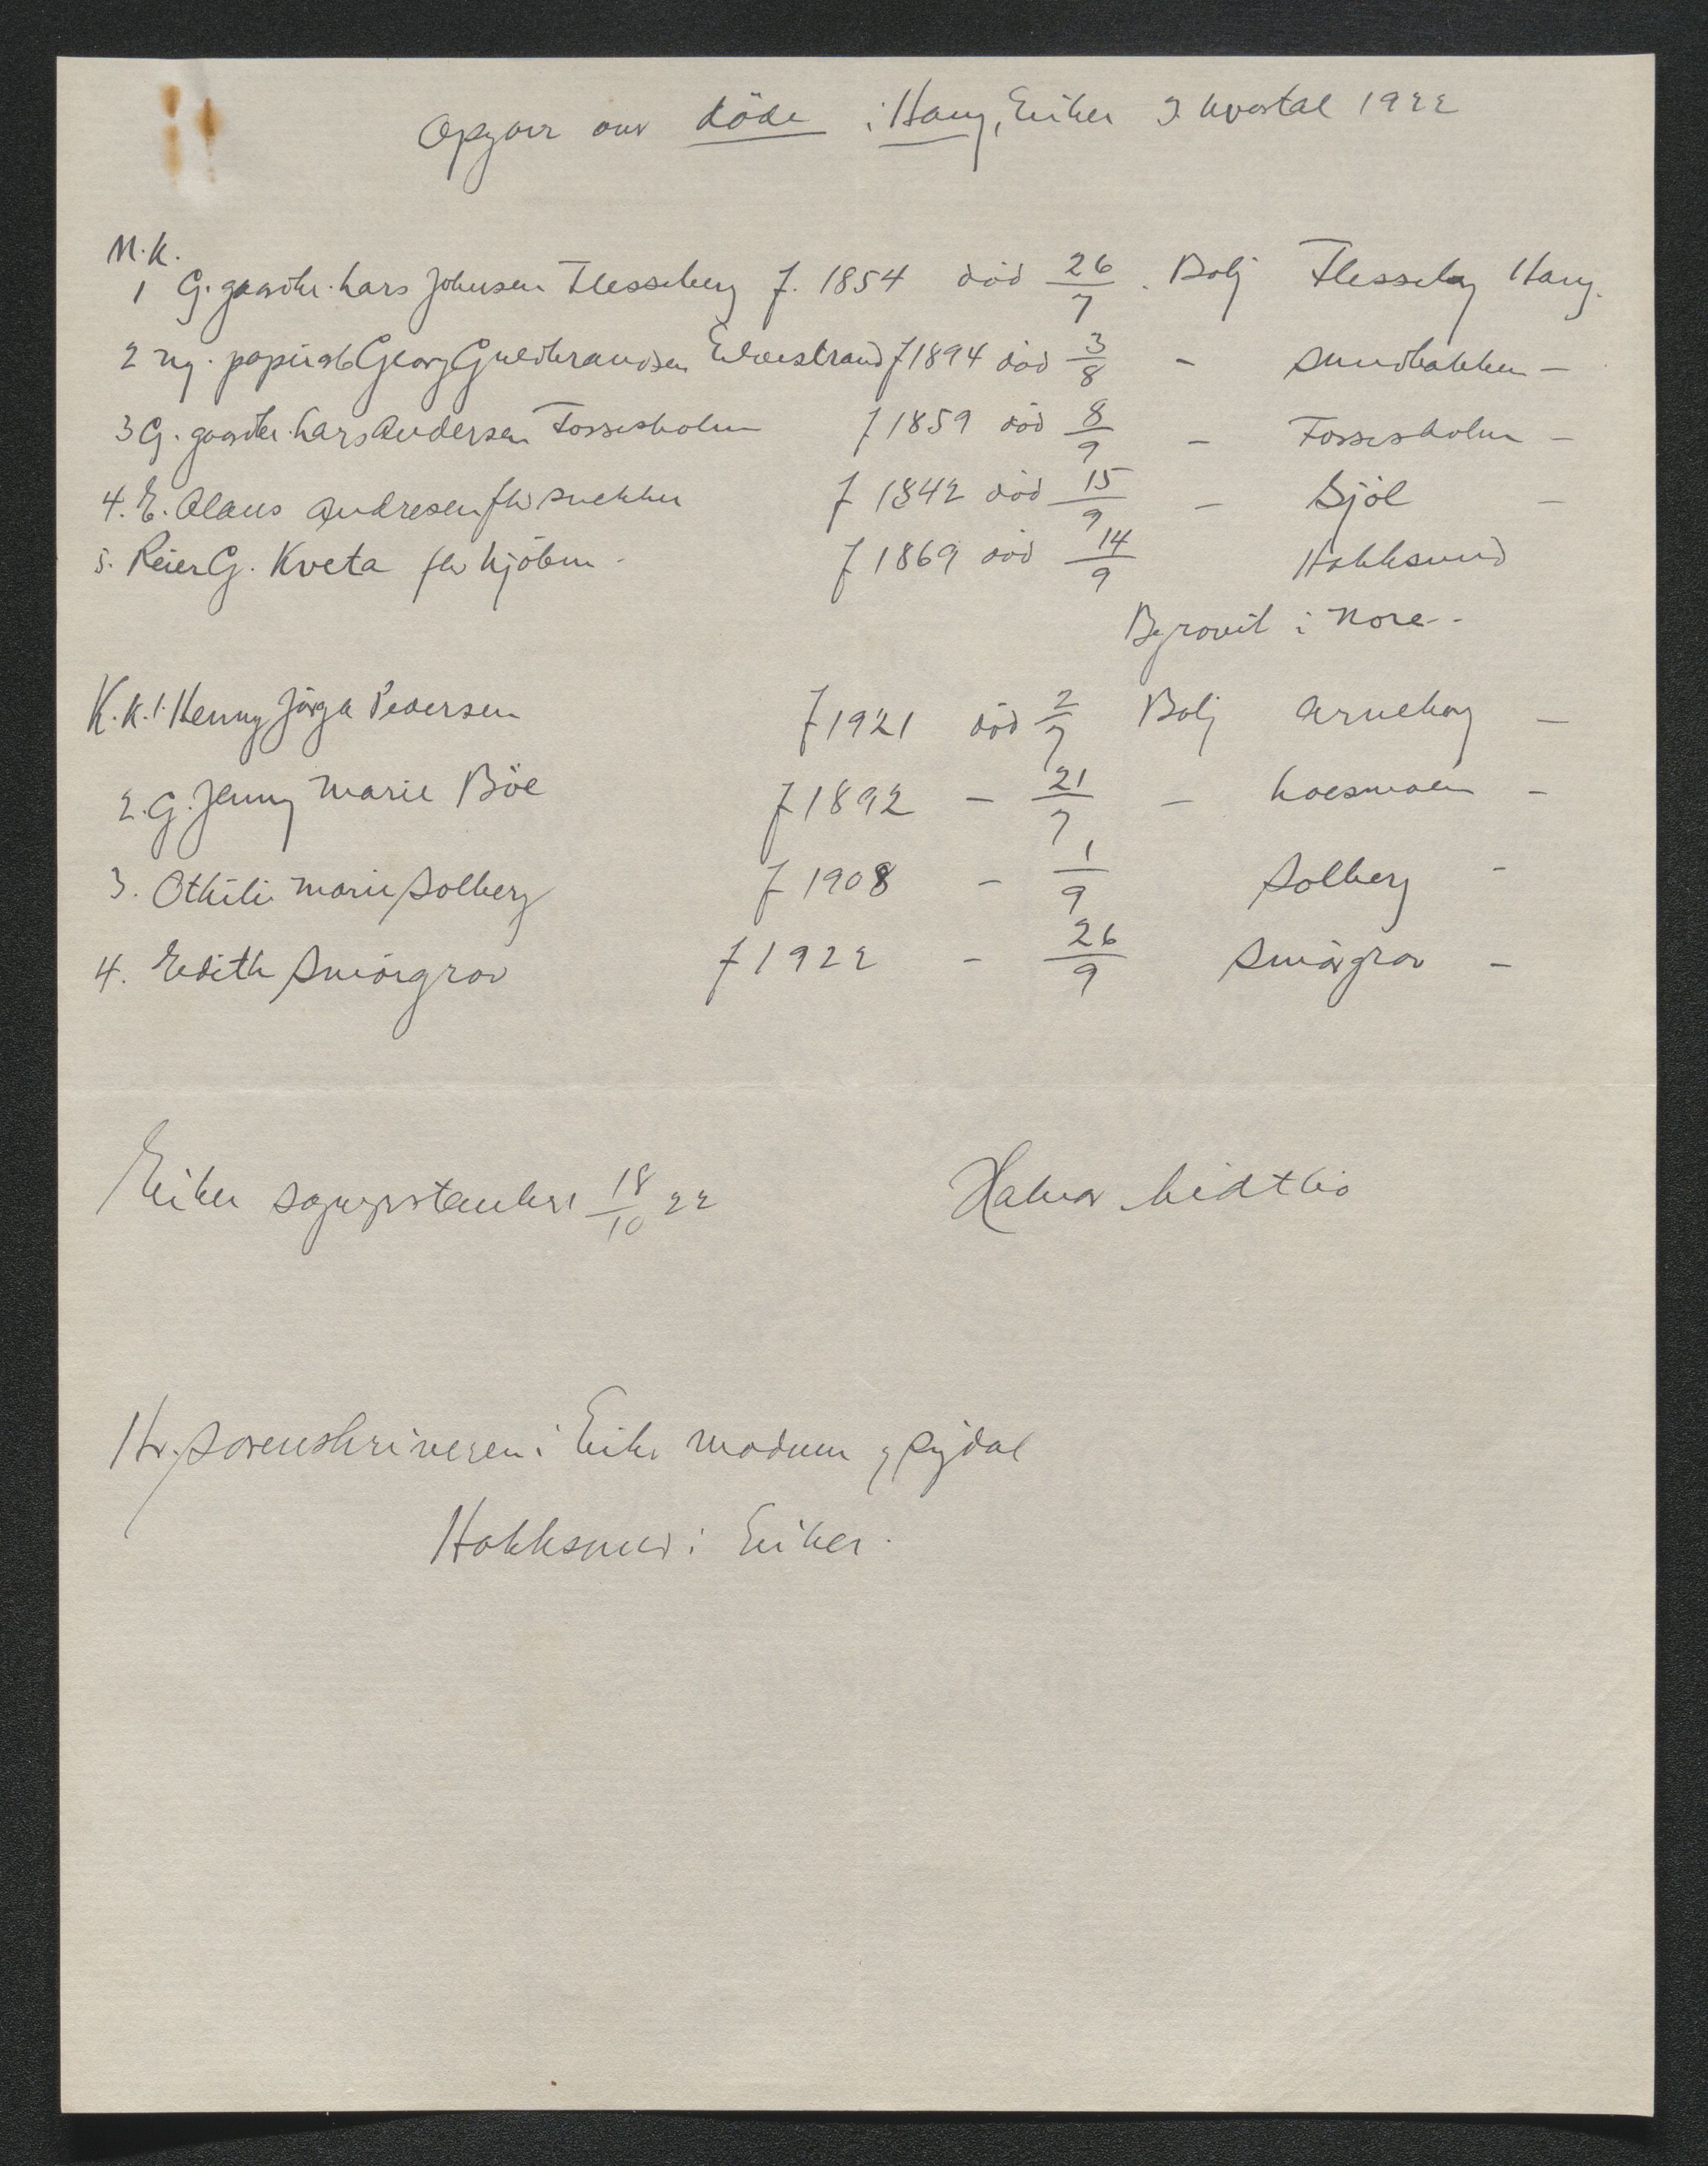 Opgave over döde i Haug, Eiker 3 kvartal 1922
M.K.
1 G. gaardbr. Lars Johnsen Flesseberg f. 1854 död 26/7. Bolj Flesseberg Haug.
2 Ug. papirarb Georg Guldbrandsen Elvestrand f 1894 död 3/8 - Sundbakken -
3 G. gaardbr. Lars Andersen Fossesholm f 1859 död 8/9 - Fossesholm -
4. E. Olaus Andresen fhv snekker f 1842 död 15/9 - Sjöl -
5. Reier G. Kveta fhv kjöbm. f 1869 död 14/9 Hokksund
Begravet i Nore -
K.K. 1. Henny Jörga Pedersen f 1921 död 2/7 Bolj Arneberg -
2. G. Jenny Marie Böe f 1892 - 21/7 - Loesmoen -
3. Othili Marie Solberg f 1908 - 1/9 Solberg -
4. Edith Smörgrav f 1922 - 26/9 Smörgrav -
Eiker sogneprestembede 18/10 22 Halvor Midtbö
Hr. Sorenskriveren i Eiker Modum og Sigdal
Hokksund i Eiker.